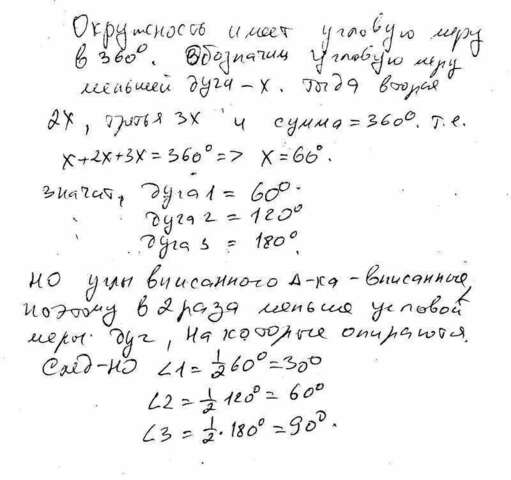 Окружность имеет угловую меру
в 360°. Обозначим угловую меру
меньшей дуга - x. Тогда вторая
2x, третья 3x и сумма = 360°. т.е.
x+2x+3x=360° => x=60°.
значит, дуга 1 = 60°.
дуга 2 = 120°
дуга 3 = 180°
НО углы вписанного Δ-ка - вписанные,
поэтому в 2 раза меньше угловой
меры дуг, на которые опираются.
След-но ∠1 = 1/2 60° = 30°
∠2 = 1/2 120° = 60°
∠3 = 1/2 · 180° = 90°.